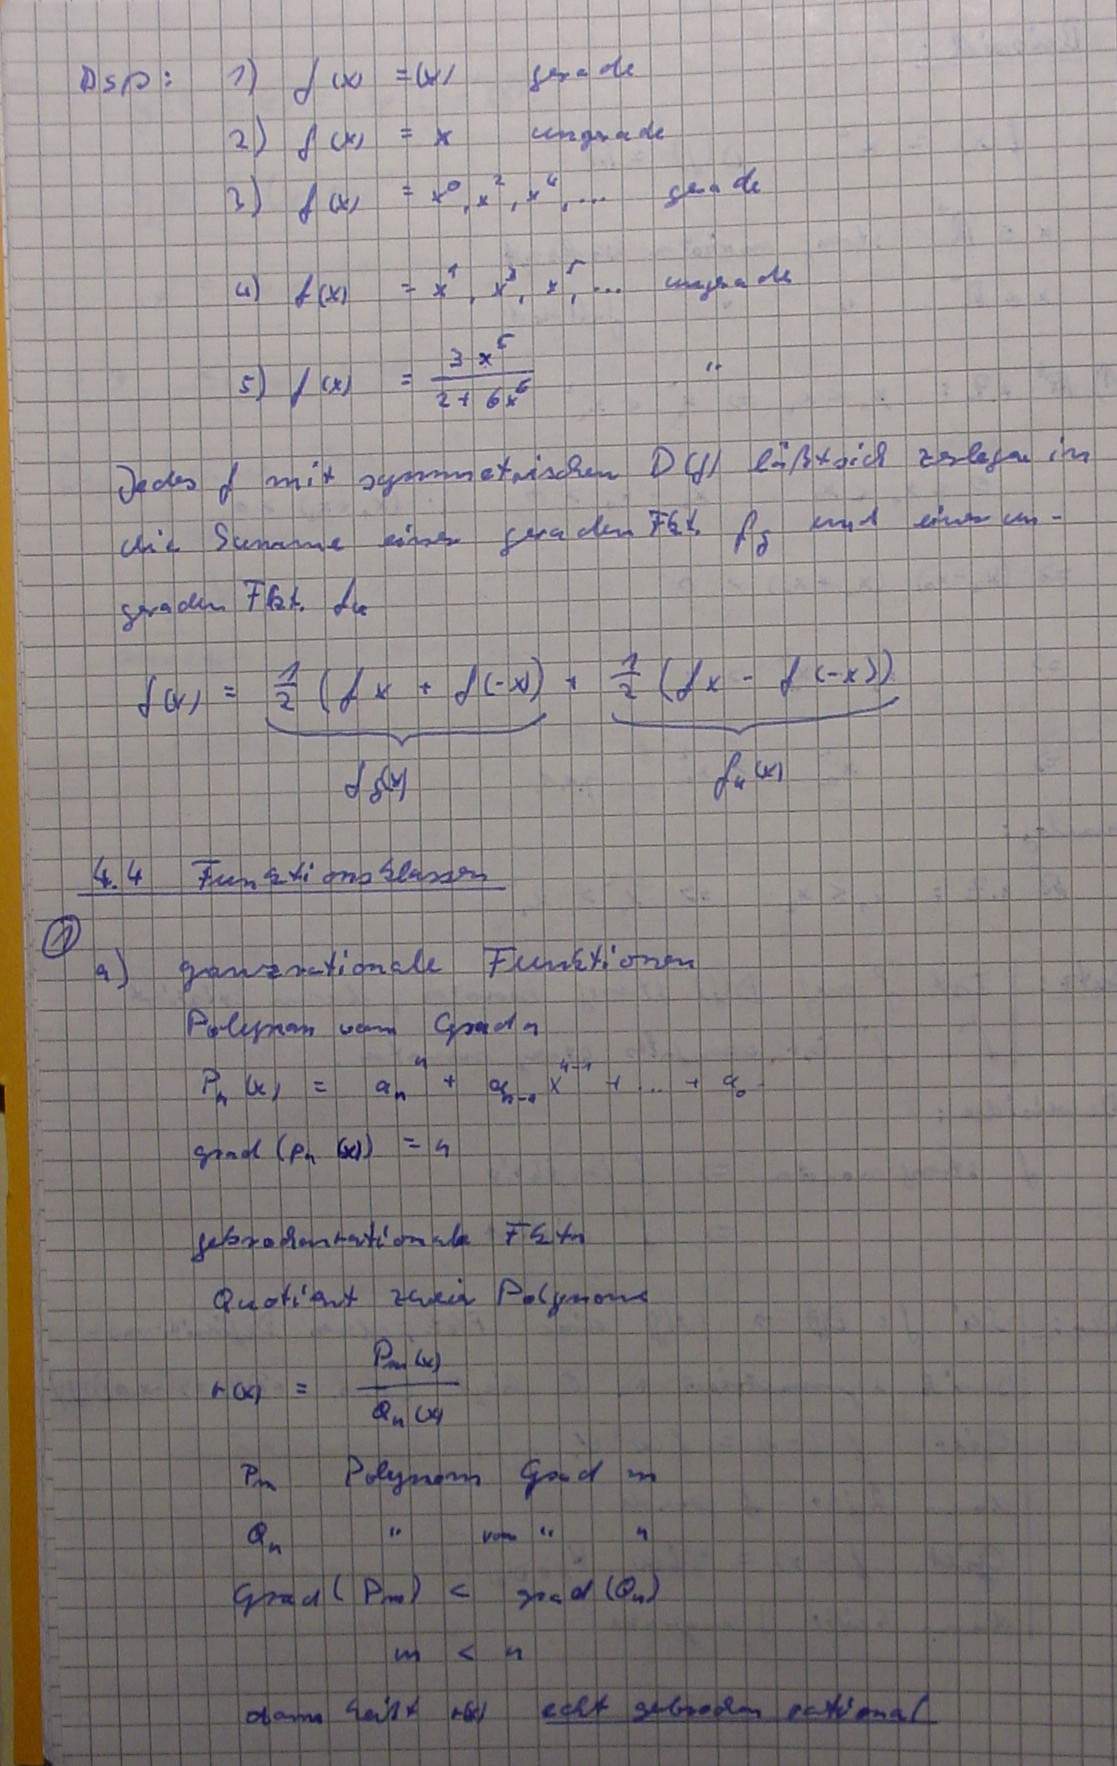 Bsp: 1) f(x) = |x| gerade
2) f(x) = x ungerade
3) f(x) = x⁰, x², x⁴, ... gerade
4) f(x) = x¹, x³, x⁵, ... ungerade
5) f(x) = 3x⁵ / (2 + 6x⁶) "
Jedes f mit symmetrischen D(f) läßt sich zerlegen in
die Summe einer geraden Fkt. f_g und einer un-
geraden Fkt. f_u
f(x) = ½ (fx + f(-x)) + ½ (fx - f(-x))
f_g(x) f_u(x)
4.4 Funktionsklassen
①
a) ganzrationale Funktionen
Polynom vom Grad n
P_n(x) = a_n ⁿ + a_{n-1} x^{n-1} + ... + a_0
grad (P_n (x)) = n
gebrochenrationale Fktn
Quotient zweier Polynome
r(x) = P_m(x) / Q_n(x)
P_m Polynom Grad m
Q_n " vom " n
Grad (P_m) < grad (Q_n)
m < n
dann heißt r(x) echt gebrochen rational